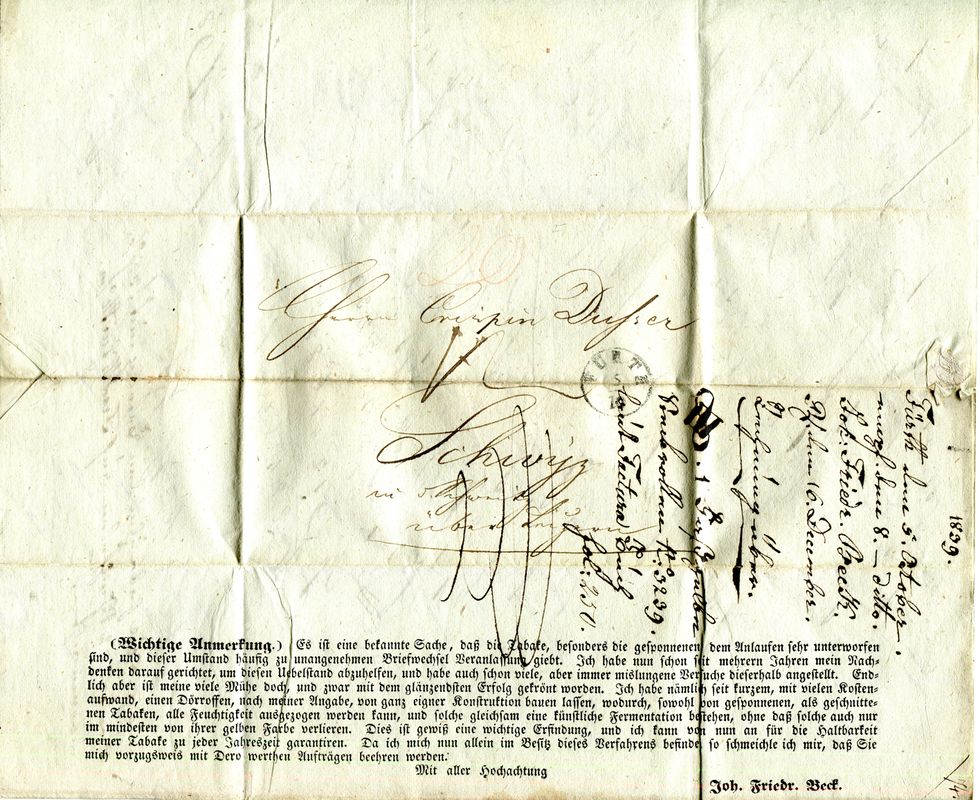 Herrn Crispin Dusser
FÜRTH
Schwÿz
über
1839.
Fürth den 5. October.
empf. den 8. — ditto.
Joh: Friedr. Beck.
6. December.
No. 3239.
laut Factura Buch
fol: 250.
(Wichtige Anmerkung.) Es ist eine bekannte Sache, daß die Tabake, besonders die gesponnenen, dem Anlaufen sehr unterworfen
sind, und dieser Umstand häufig zu unangenehmen Briefwechsel Veranlassung giebt. Ich habe nun schon seit mehrern Jahren mein Nach-
denken darauf gerichtet, um diesen Uebelstand abzuhelfen, und habe auch schon viele, aber immer mislungene Versuche dieserhalb angestellt. End-
lich aber ist meine viele Mühe doch, und zwar mit dem glänzendsten Erfolg gekrönt worden. Ich habe nämlich seit kurzem, mit vielen Kosten-
aufwand, einen Dörroffen, nach meiner Angabe, von ganz eigner Konstruktion bauen lassen, wodurch, sowohl von gesponnenen, als geschnitte-
nen Tabaken, alle Feuchtigkeit ausgezogen werden kann, und solche gleichsam eine künstliche Fermentation bestehen, ohne daß solche auch nur
im mindesten von ihrer gelben Farbe verlieren. Dies ist gewiß eine wichtige Erfindung, und ich kann von nun an für die Haltbarkeit
meiner Tabake zu jeder Jahreszeit garantiren. Da ich mich nun allein im Besitz dieses Verfahrens befinde so schmeichle ich mir, daß Sie
mich vorzugsweis mit Dero werthen Aufträgen beehren werden.
Mit aller Hochachtung
Joh. Friedr. Beck.